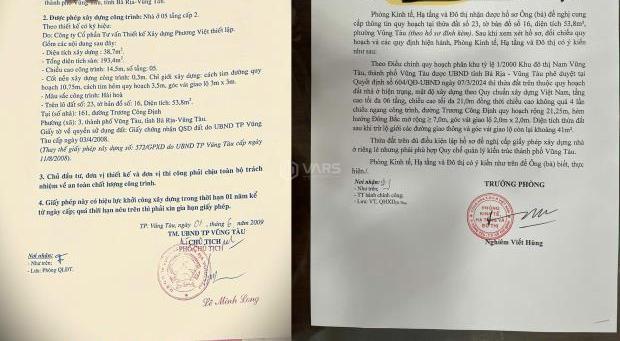 thành phố Vũng Tàu, tỉnh Bà Rịa-Vũng Tàu.
2. Được phép xây dựng công trình: Nhà ở 05 tầng cấp 2.
Theo thiết kế có ký hiệu:
Do: Công ty Cổ phần Tư vấn Thiết kế Xây dựng Phương Việt thiết lập.
Gồm các nội dung sau đây:
- Diện tích xây dựng : 38,7m².
- Tổng diện tích sàn: 193,4m².
- Chiều cao công trình: 14,5m, số tầng: 05.
- Cốt nền xây dựng công trình: 0,3m. Chỉ giới xây dựng: cách tim đường quy
hoạch 10.75m, cách tim hẻm quy hoạch 3,5m, góc vát giao lộ 3m x 3m.
- Màu sắc công trình: Hài hoà
- Trên lô đất số: 23, tờ bản đồ số: 16, Diện tích: 53,8m².
Tại (số nhà): 161, đường Trương Công Định
Phường(xã): 3, thành phố Vũng Tàu, tỉnh Bà Rịa-Vũng Tàu.
Giấy tờ về quyền sử dụng đất: Giấy chứng nhận QSD đất do UBND TP Vũng
Tàu cấp ngày 03/4/2008.
(Thay thế giấy phép xây dựng số 572/GPXD do UBND TP Vũng Tàu cấp ngày
11/8/2008).
3. Chủ đầu tư, đơn vị thiết kế và đơn vị thi công phải chịu toàn bộ trách
nhiệm về an toàn chất lượng công trình.
4. Giấy phép này có hiệu lực khởi công xây dựng trong thời hạn 01 năm kể
từ ngày cấp; quá thời hạn nêu trên thì phải xin gia hạn giấy phép.
TP. Vũng Tàu, ngày 01 tháng 6 năm 2009
TM. UBND TP VŨNG TÀU
CHỦ TỊCH
PHÓ CHỦ TỊCH
Nơi nhận:
- Như trên;
- Lưu: Phòng QLĐT.
Lê Minh Long
VARS
Phòng Kinh tế, Hạ tầng và Đô thị nhận được hồ sơ Ông (bà) đề nghị cung
cấp thông tin quy hoạch tại thửa đất số 23, tờ bản đồ số 16, diện tích 53,8m²,
phường Vũng Tàu (theo hồ sơ đính kèm). Sau khi xem xét hồ sơ, đối chiếu quy
hoạch và các quy định hiện hành, Phòng Kinh tế, Hạ tầng và Đô thị có ý kiến
như sau:
Theo Điều chỉnh quy hoạch phân khu tỷ lệ 1/2000 Khu đô thị Nam Vũng
Tàu, thành phố Vũng Tàu được UBND tỉnh Bà Rịa - Vũng Tàu phê duyệt tại
Quyết định số 604/QĐ-UBND ngày 07/3/2024 thì thửa đất trên thuộc quy hoạch
đất nhà ở hiện trạng, mật độ xây dựng theo Quy chuẩn xây dựng Việt Nam, tầng
cao tối đa 06 tầng, chiều cao tối đa 21,0m đồng thời chiều cao không quá 4 lần
chiều ngang công trình, đường Trương Công Định quy hoạch rộng 21,25m, hẻm
hướng Đông Bắc mở rộng ≥ 7,0m, góc vát giao lộ 2,0m x 2,0m. Diện tích thửa đất
sau khi trừ lộ giới các đường giao thông và góc vát giao lộ còn lại khoảng 41m².
Thửa đất trên đủ điều kiện lập hồ sơ đề nghị cấp giấy phép xây dựng nhà
ở riêng lẻ nhưng phải phù hợp Quy chế quản lý kiến trúc thành phố Vũng Tàu.
Phòng Kinh tế, Hạ tầng và Đô thị có ý kiến như trên để Ông (bà) biết, thực
hiện./.
Nơi nhận:
- Như trên;
- TT hành chính công;
- Lưu: VT, QHXD
TRƯỞNG PHÒNG
PHÒNG
KINH TẾ
HẠ TẦNG VÀ
ĐÔ THỊ
Nghiêm Viết Hùng